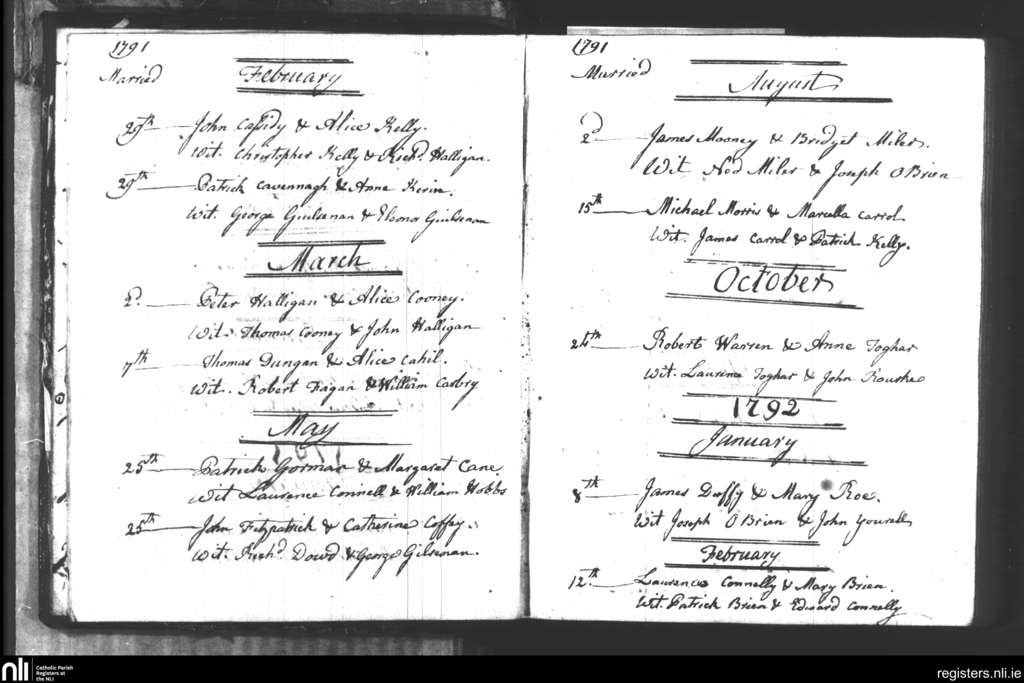 1791
Married
February
29th John Cassidy & Alice Kelly.
Wit. Christopher Kelly & Richd. Halligan.
29th Patrick Cavennagh & Anne Kerin.
Wit. George Guilsenan & Elenor Guilsenan
March
2d. Peter Halligan & Alice Cooney.
Wit. Thomas Cooney & John Halligan
7th Thomas Dungan & Alice Cahil.
Wit. Robert Fagan & William Casbry
May
25th Patrick Gorman & Margaret Cane.
Wit Laurence Connell & William Hobbs
25th John Fitzpatrick & Catherine Coffey.
Wit. Richd. Dowd & George Gilsenan.
1791
Married
August
2d James Mooney & Bridget Miler.
Wit Ned Miler & Joseph O Brien
15th Michael Morris & Marcella Carrol
Wit. James Carrol & Patrick Kelly.
October
24th Robert Warren & Anne Toghar
Wit. Laurence Toghar & John Rourke
1792
January
8th James Duffy & Mary Roe.
Wit Joseph O Brien & John Yourell
February
12th Laurence Connelly & Mary Brien.
Wit. Patrick Brien & Edward Connelly
nli
Catholic Parish
Registers at
the NLI
registers.nli.ie